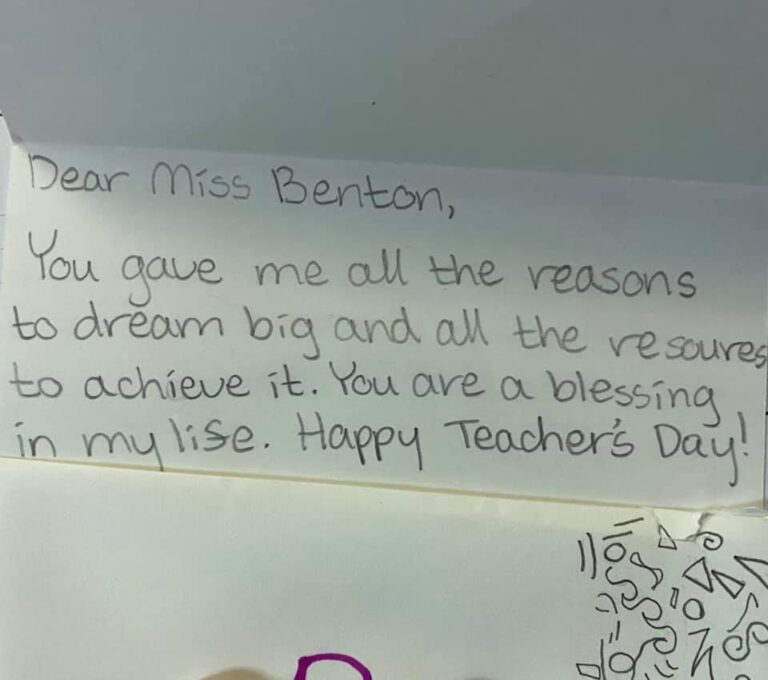 Dear Miss Benton,
You gave me all the reasons
to dream big and all the resoures
to achieve it. You are a blessing
in my lise. Happy Teacher's Day!